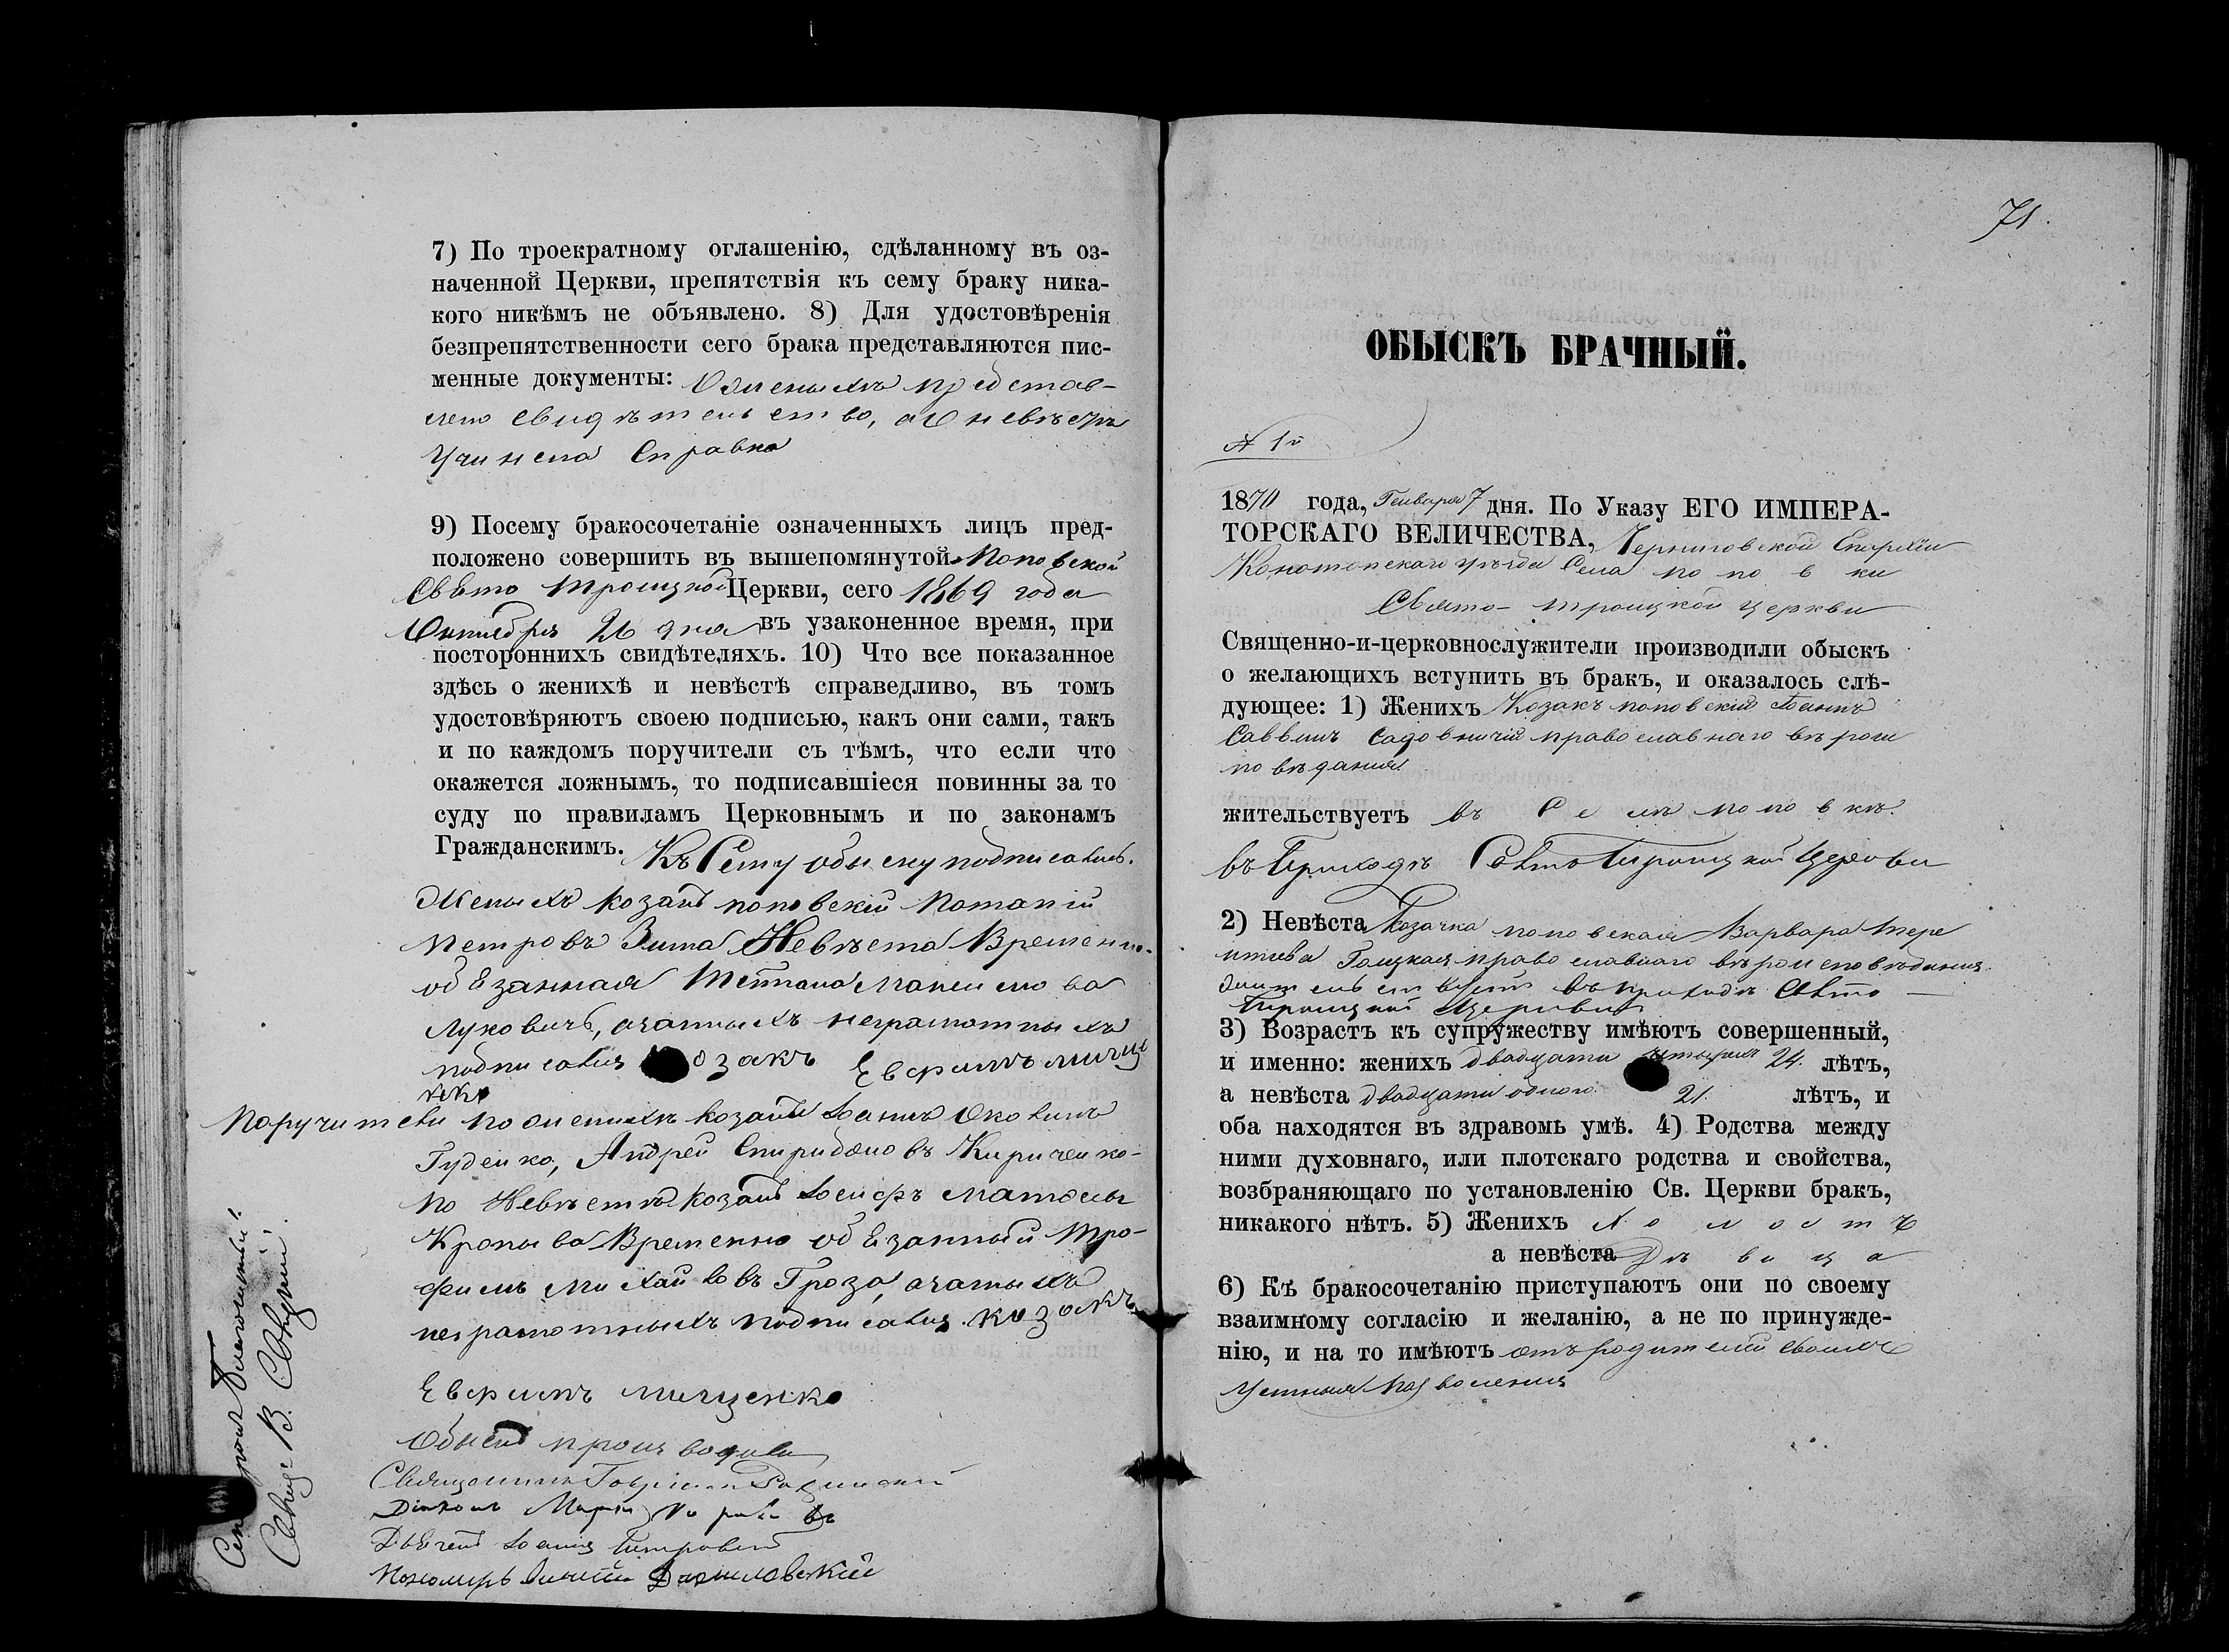 7) По троекратному оглашенію, сдѣланному въ оз-
наченной Церкви, препятствія къ сему браку ника-
кого никѣмъ не объявлено. 8) Для удостовѣренія
безпрепятственности сего брака представляются пис-
менные документы: О женыхѣ представ-
лено свидѣтельство, а О невѣстѣ
Учинена Справка
9) Посему бракосочетаніе означенныхъ лицъ пред-
положено совершить въ вышепомянутой Поповской
Свято Троицкой Церкви, сего 1869 года
Октября 26 дня въ узаконенное время, при
постороннихъ свидѣтеляхъ. 10) Что все показанное
здѣсь о женихѣ и невѣстѣ справедливо, въ томъ
удостовѣряютъ своею подписью, какъ они сами, такъ
и по каждомъ поручители съ тѣмѣ, что если что
окажется ложнымъ, то подписавшіеся повинны за то
суду по правиламъ Церковнымъ и по законамъ
Гражданскимъ. Къ Сему обыску подписались.
Женыхъ козакъ поповскій Потапій
Петровъ Зима Невѣста Временно-
обязанная Татіана
Луковичъ, а за нихъ неграмотныхъ
подписался козакъ Евфимъ мище
нко
Поручители по женихѣ козаки Іоаннъ
Гуденко, Андрей Спиридоновъ Кириченко-
по Невѣстѣ козакъ Іосифъ
Кропыва Временно обязанный Тро-
фимъ Михайловъ Гроза, а за нихъ
неграмотныхъ подписался козакъ
Евфимъ мищенко
Обыскъ производили
Священникъ
Діаконъ
Дьячекъ Іоаннъ
Пономарь Даниловскій
71.
ОБЫСКЪ БРАЧНЫЙ.
№ 1й
1870 года, Генваря 7 дня. По Указу ЕГО ИМПЕРА-
ТОРСКАГО ВЕЛИЧЕСТВА, Черниговской Епархіи
Конотопскаго уѣзда Села поповки
Свято-троицкой церкви
Священно-и-церковнослужители производили обыскъ
о желающихъ вступить въ бракъ, и оказалось слѣ-
дующее: 1) Женихъ Козакъ поповскій Іоаннъ
Саввинъ Садовничій православнаго вѣроис
повѣданія
жительствуетъ въ Селѣ поповкѣ
въ Приходѣ Свято Троицкой Церкви
2) Невѣста Козачка поповская Варвара Тере
нтіева Голуцкая православнаго вѣроисповѣданія
жительствуетъ въ приходѣ Свято
Троицкой Церкви
3) Возрастъ къ супружеству имѣютъ совершенный,
и именно: женихъ двадцати четырехъ 24. лѣтъ,
а невѣста двадцати одного 21. лѣтъ, и
оба находятся въ здравомъ умѣ. 4) Родства между
ними духовнаго, или плотскаго родства и свойства,
возбраняющаго по установленію Св. Церкви бракъ,
никакого нѣтъ. 5) Женихъ Холостъ
а невѣста Дѣвица
6) Къ бракосочетанію приступаютъ они по своему
взаимному согласію и желанію, а не по принужде-
нію, и на то имѣютъ отъ родителей своихъ
устныя позволенія